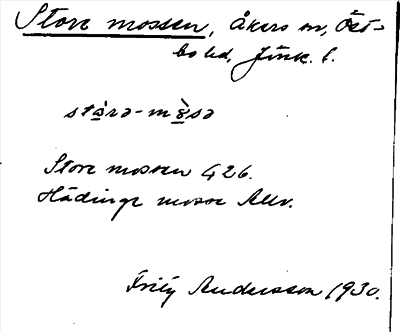 Store mossen, Åkers sn, Öst-
bo hd, Jönk. l.
stɑ̀rə-mʊ̀sə
Store mossen 426.
Hädinge mosse
Andersson 1930.